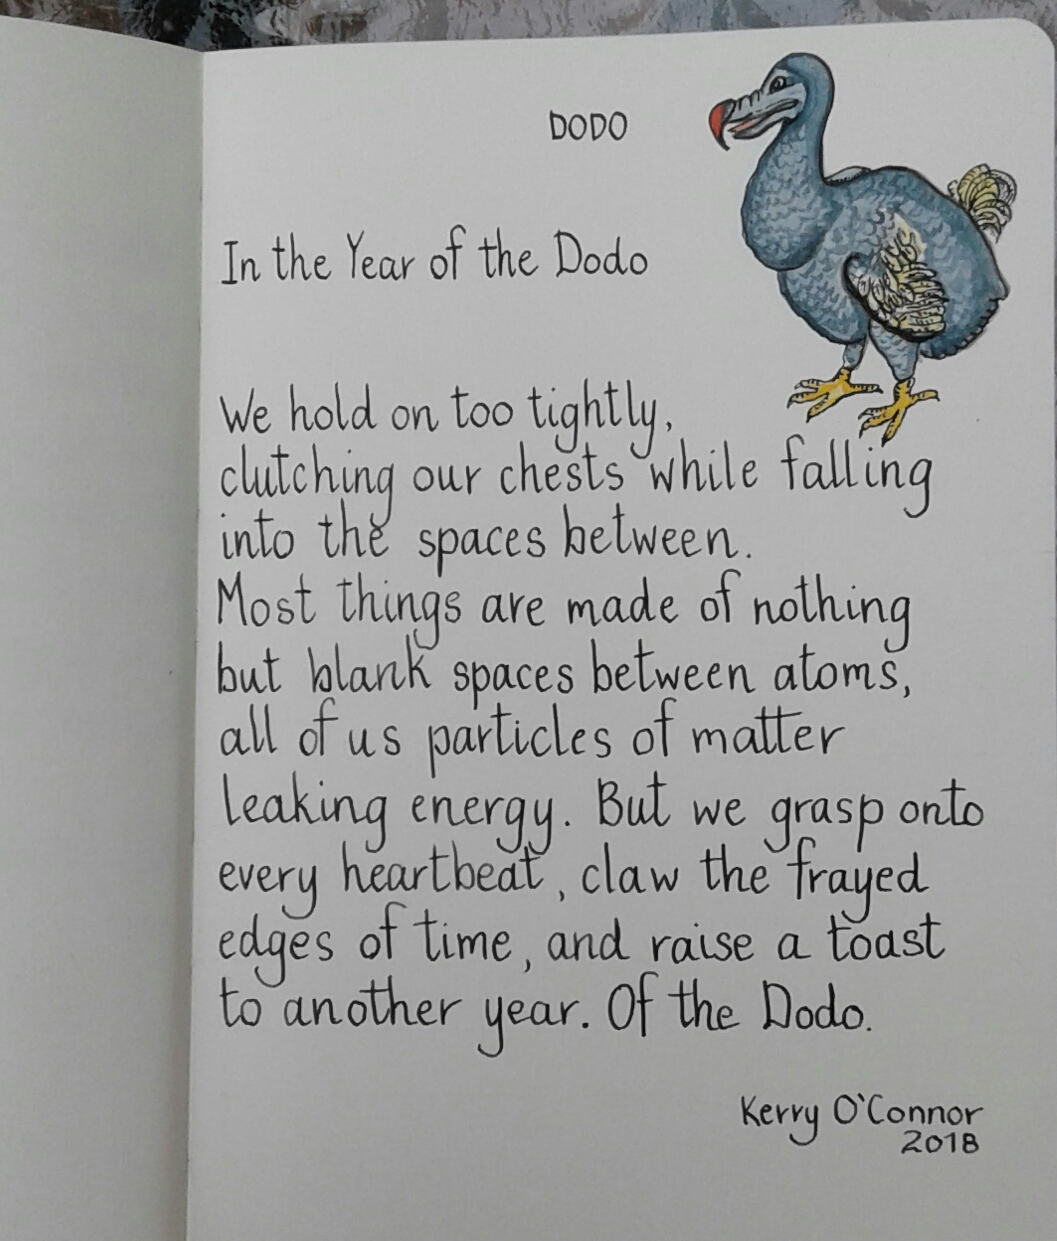 DODO
In the Year of the Dodo
We hold on too tightly,
clutching our chests while falling
into the spaces between.
Most things are made of nothing
but blank spaces between atoms,
all of us particles of matter
leaking energy. But we grasp onto
every heartbeat, claw the frayed
edges of time, and raise a toast
to another year. Of the Dodo.
Kerry O'Connor
2018